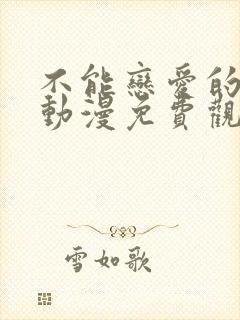 不能戀愛的
動漫免費觀
雪如歌